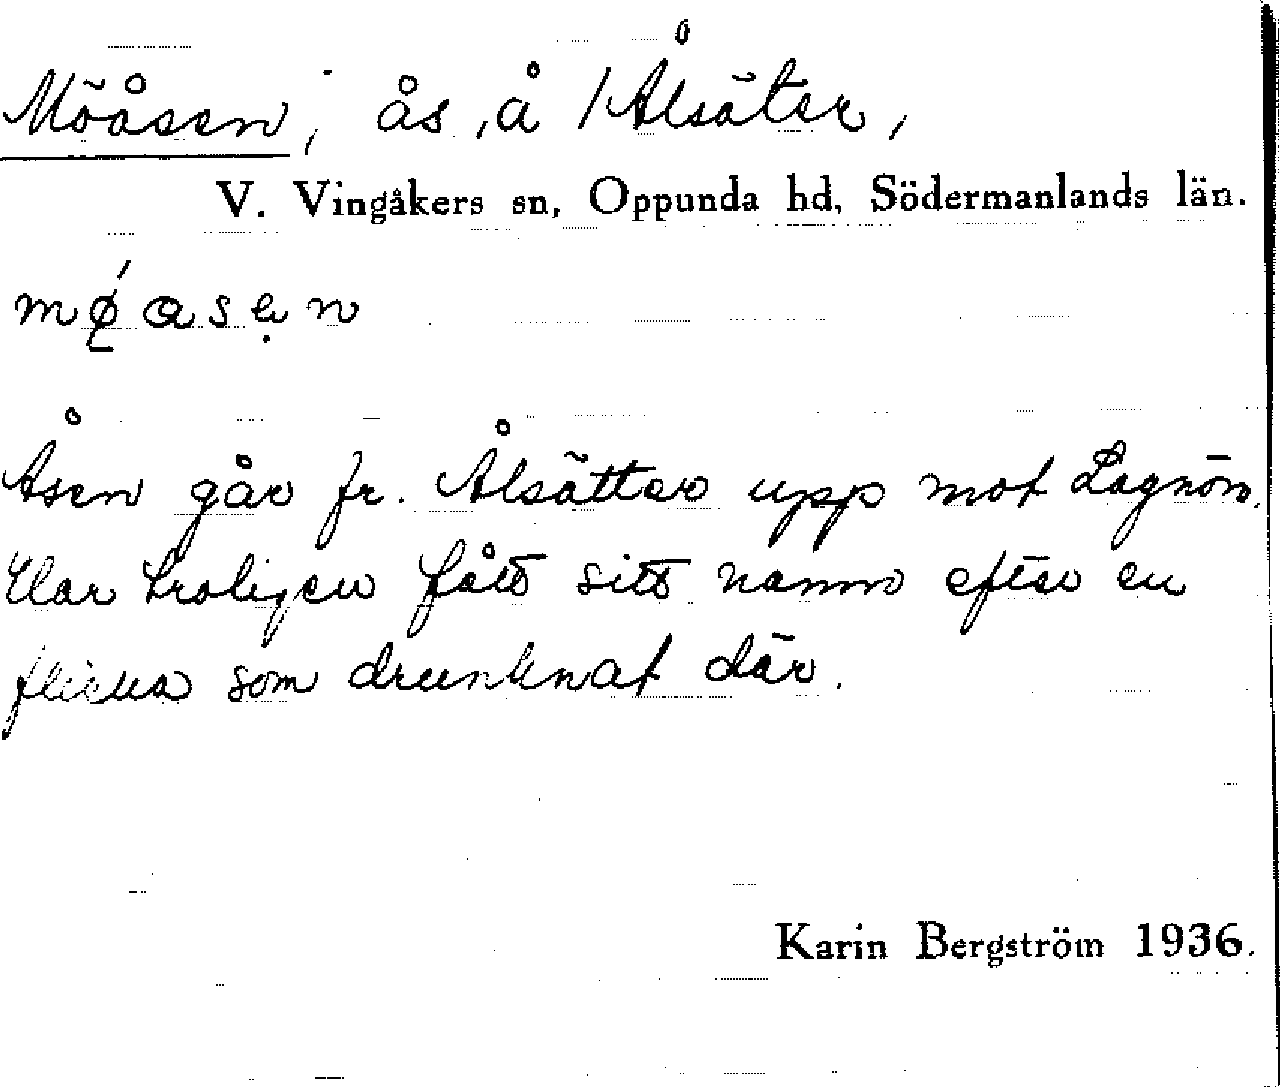 Möåsen, ås, å 1 Ålsäter,
V. Vingåkers sn, Oppunda hd, Södermanlands län.
Åsen går fr. Ålsätter upp mot Lagnön.
Har troligen fått sitt namn efter en
flicka som drunknat där.
Karin Bergström 1936.